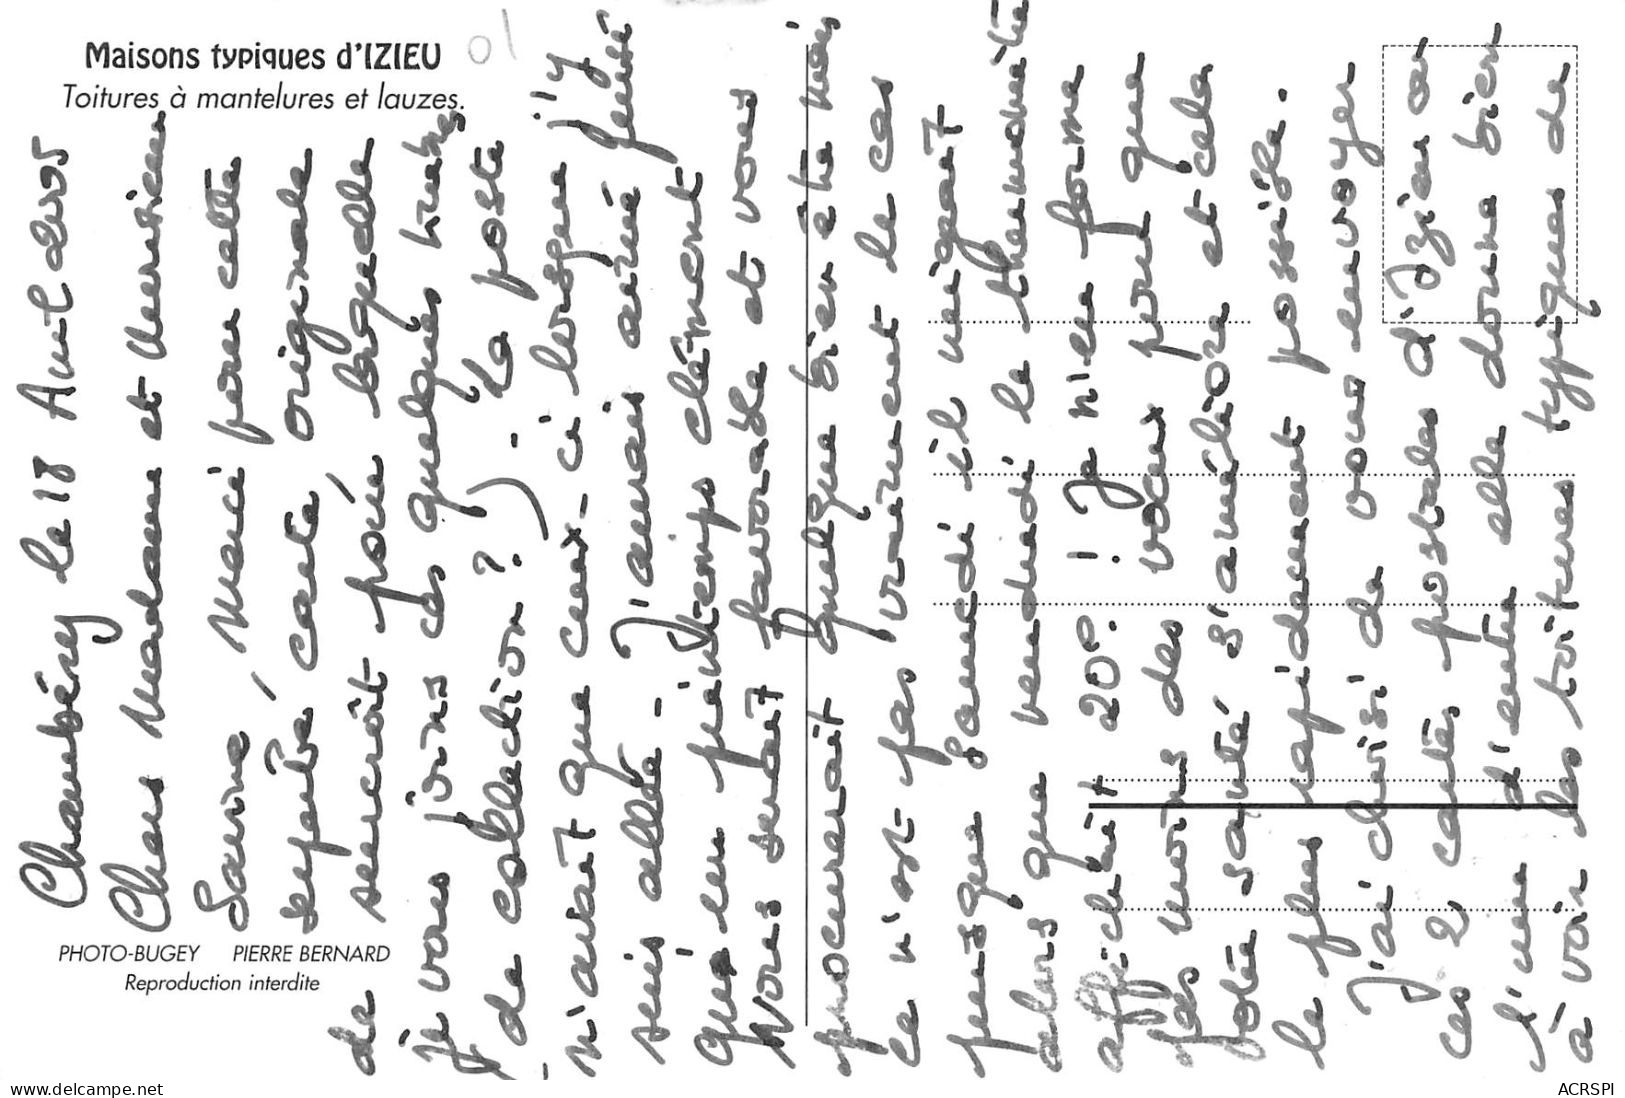 Maisons typiques d'IZIEU
Toitures à mantelures et lauzes.
01
Chambéry le 18 Avril 2005
Chers Madame et Monsieur
Savine, Merci pour cette
superbe carte originale
de surcroît pour laquelle
je vous joins ces quelques timbres
de collection ? - La poste
n'avait que ceux-ci lorsque j'y
suis allée - J'aurais aimé
qu'un printemps clément
vous serait favorable et vous
procurerait quelque bien être mais
ce n'est pas vraiment le cas
puisque samedi il neigeait
alors que vendredi le thermomètre
affichait 20°. ! Je n'en forme
pas moins des vœux pour que
votre santé s'améliore et cela
le plus rapidement possible.
J'ai choisi de vous envoyer
ces 2 cartes postales d'Izieu
l'une d'entre elle donne bien
à voir les toitures typiques de
PHOTO-BUGEY PIERRE BERNARD
Reproduction interdite
www.delcampe.net
ACRSPI